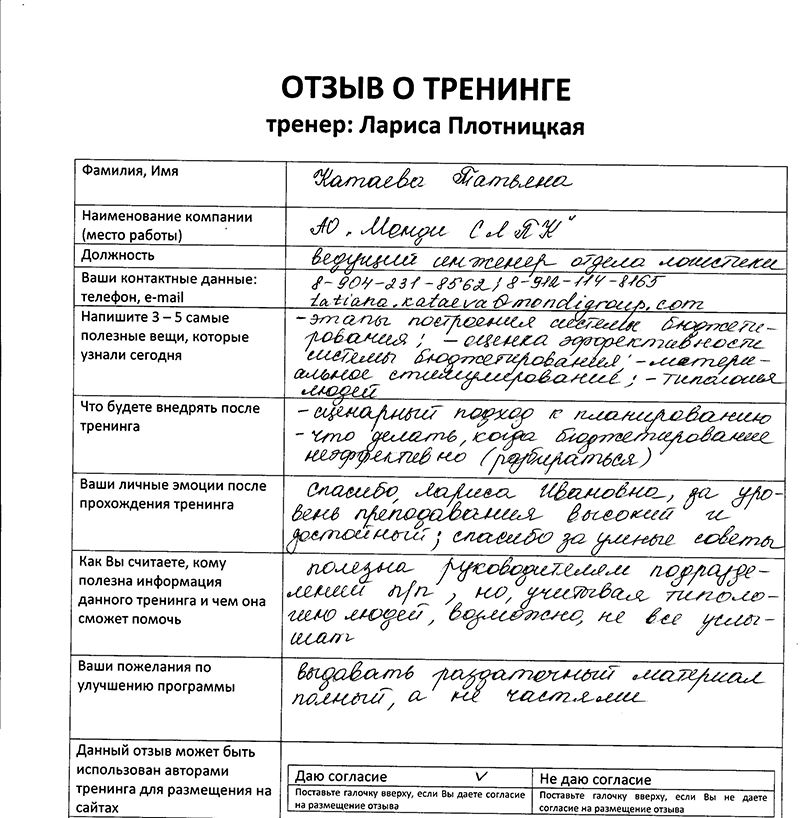 ОТЗЫВ О ТРЕНИНГЕ
тренер: Лариса Плотницкая
Фамилия, Имя
Катаева Татьяна
Наименование компании
(место работы)
АО „Монди СЛПК"
Должность
ведущий инженер отдела логистики
Ваши контактные данные:
телефон, e-mail
8-904-231-8562; 8-912-114-8165
tatiana.kataeva@mondigroup.com
Напишите 3 – 5 самые
полезные вещи, которые
узнали сегодня
- этапы построения системы бюджети-
рования; - оценка эффективности
системы бюджетирования; - матери-
альное стимулирование; - типология
людей
Что будете внедрять после
тренинга
- сценарный подход к планированию
- что делать, когда бюджетирование
неэффективно (разбираться)
Ваши личные эмоции после
прохождения тренинга
Спасибо, Лариса Ивановна, за уро-
вень преподавания высокий и
достойный; спасибо за умные советы
Как Вы считаете, кому
полезна информация
данного тренинга и чем она
сможет помочь
полезна руководителям подразде-
лений п/п, но, учитывая типоло-
гию людей, возможно, не все услы-
шат
Ваши пожелания по
улучшению программы
выдавать раздаточный материал
полный, а не частями
Данный отзыв может быть
использован авторами
тренинга для размещения на
сайтах
Даю согласие ✓
Поставьте галочку вверху, если Вы даете согласие
на размещение отзыва
Не даю согласие
Поставьте галочку вверху, если Вы не даете
согласие на размещение отзыва